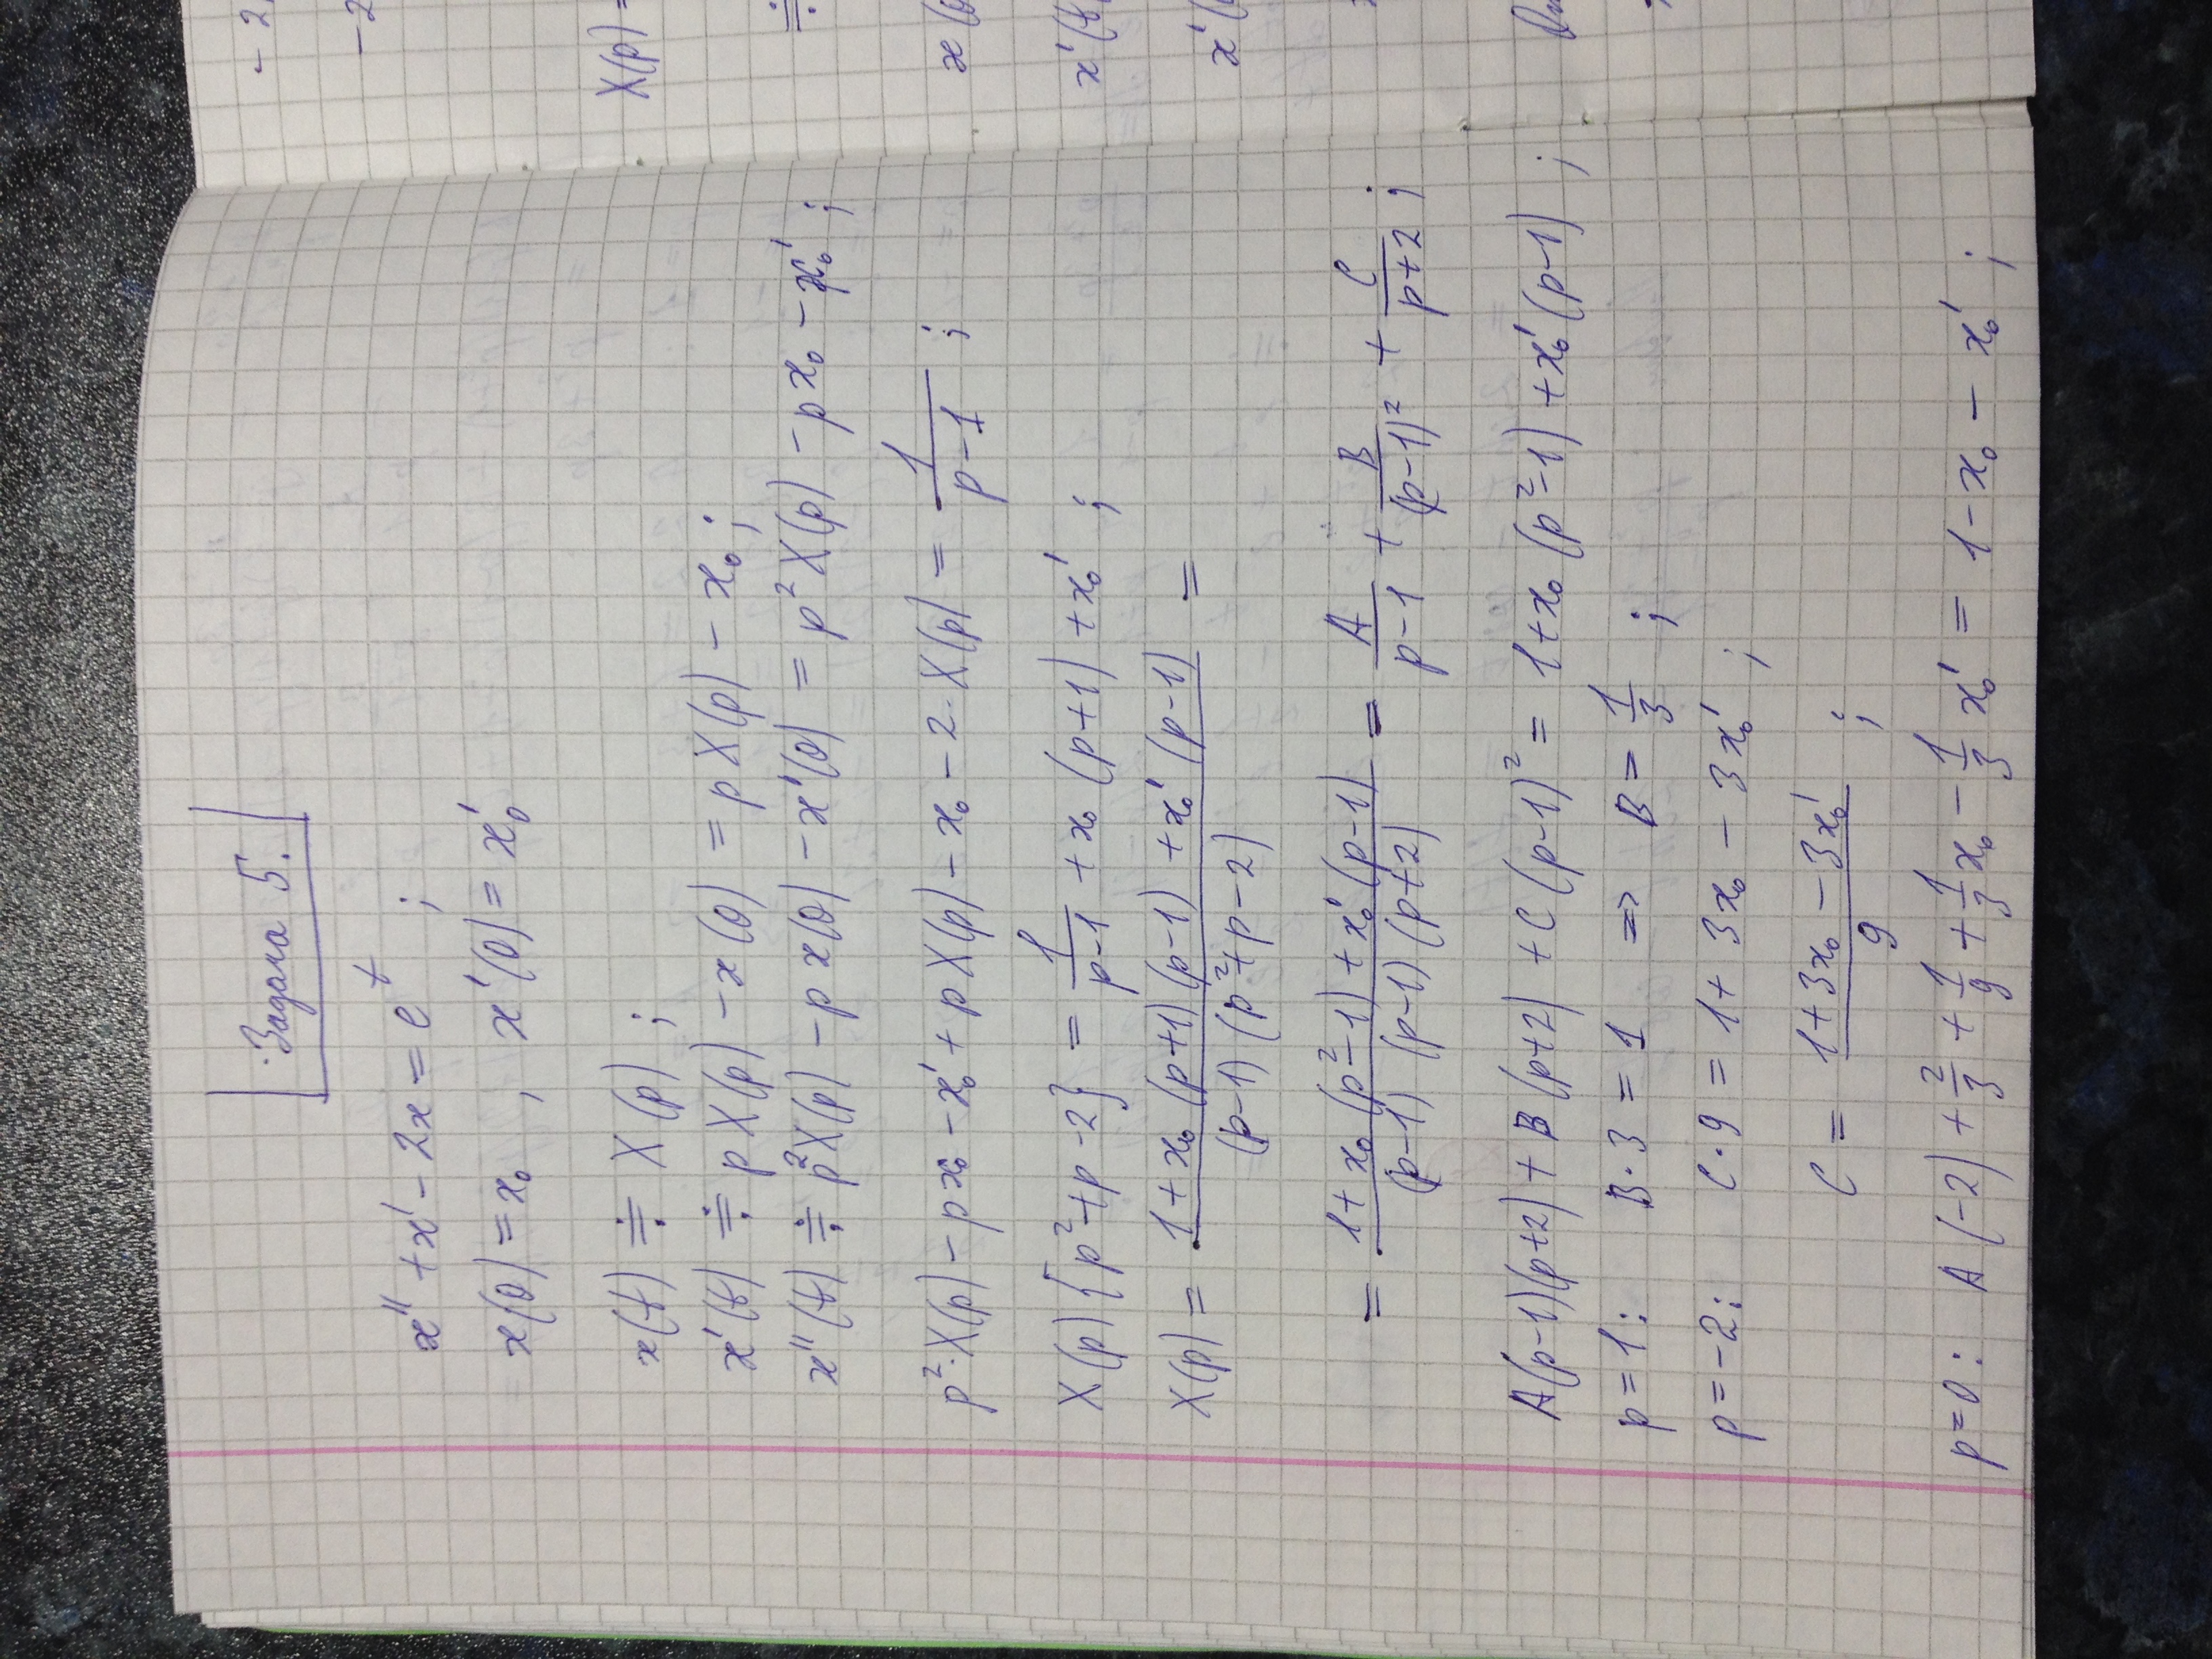 Задача 5.
x'' + x' - 2x = e^t ;
x(0) = x₀ , x'(0) = x₀'
x(t) ≑ X(p) ;
x'(t) ≑ pX(p) - x(0) = pX(p) - x₀ ;
x''(t) ≑ p²X(p) - px(0) - x'(0) = p²X(p) - px₀ - x₀' ;
p²·X(p) - px₀ - x₀' + pX(p) - x₀ - 2·X(p) = 1/(p-1) ;
X(p) {p² + p - 2} = 1/(p-1) + x₀ (p+1) + x₀' ;
X(p) = (1 + x₀ (p+1)(p-1) + x₀' (p-1)) / ((p-1)(p² + p - 2)) =
= (1 + x₀ (p²-1) + x₀' (p-1)) / ((p-1)(p-1)(p+2)) = A/(p-1) + B/(p-1)² + C/(p+2) ;
A(p-1)(p+2) + B(p+2) + C(p-1)² = 1 + x₀ (p²-1) + x₀' (p-1) ;
p = 1: B·3 = 1 => B = 1/3 ;
p = -2: C·9 = 1 + 3x₀ - 3x₀' ;
C = (1 + 3x₀ - 3x₀') / 9 ;
p = 0: A(-2) + 2/3 + 1/9 + 1/3 x₀ - 1/3 x₀' = 1 - x₀ - x₀' ;
- 2
- 2
X(p) =
≑
x(0
x'(t)
x'(